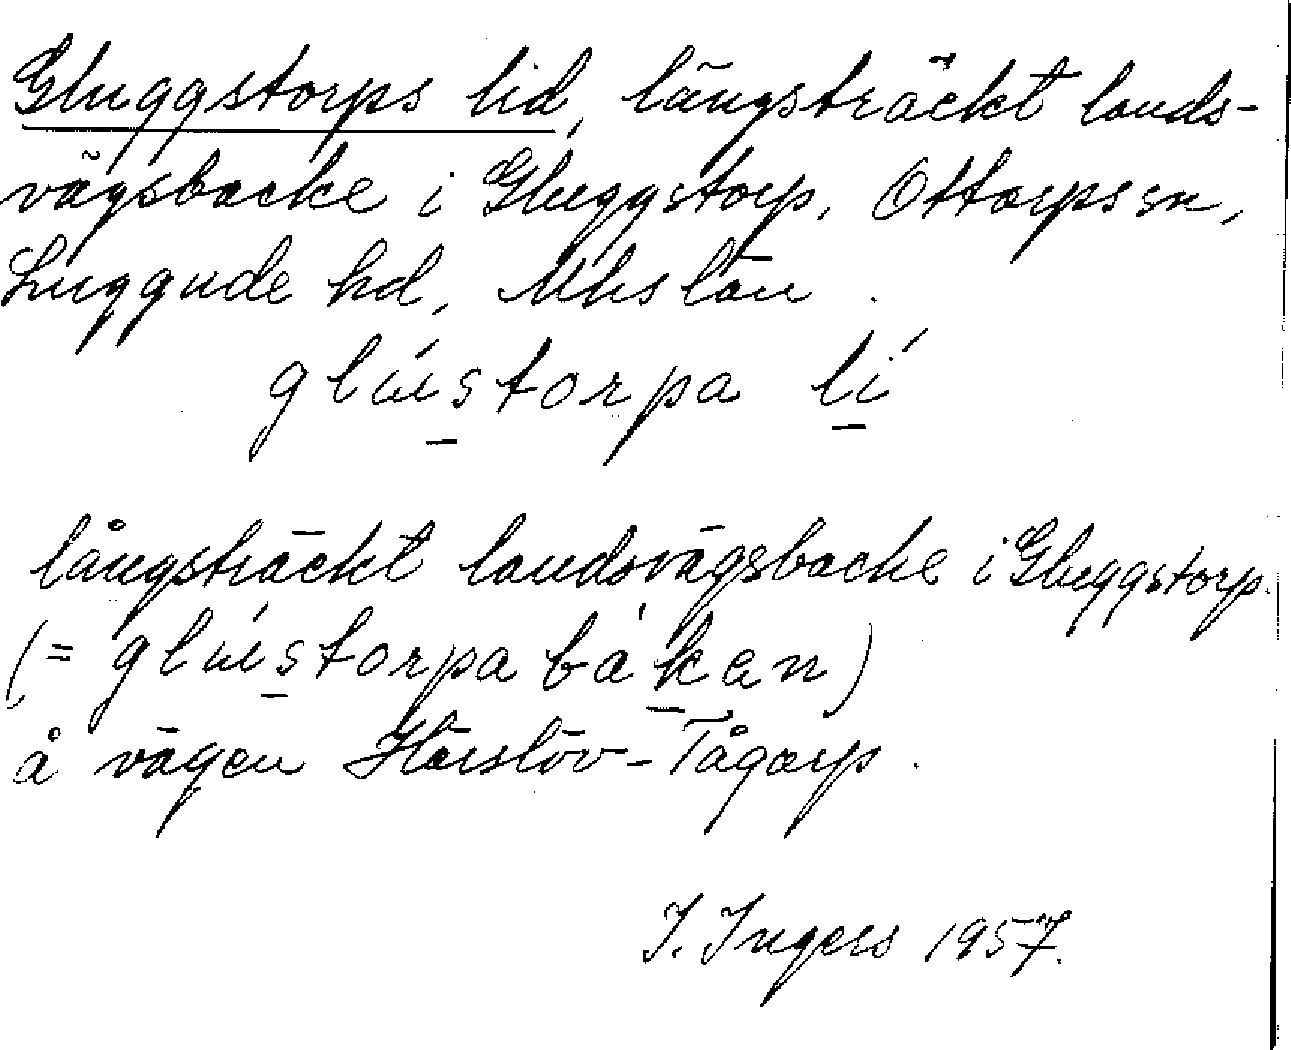 Gluggstorps lid, långsträckt lands-
vägsbacke i Gluggstorp, Ottarps sn,
Luggude hd, Mhs län.
glúistorpa lí
långsträckt landsvägsbacke i Gluggstorp.
(= glúistorpa bákan)
å vägen Härslöv-Tågarp.
I. Ingers 1957.